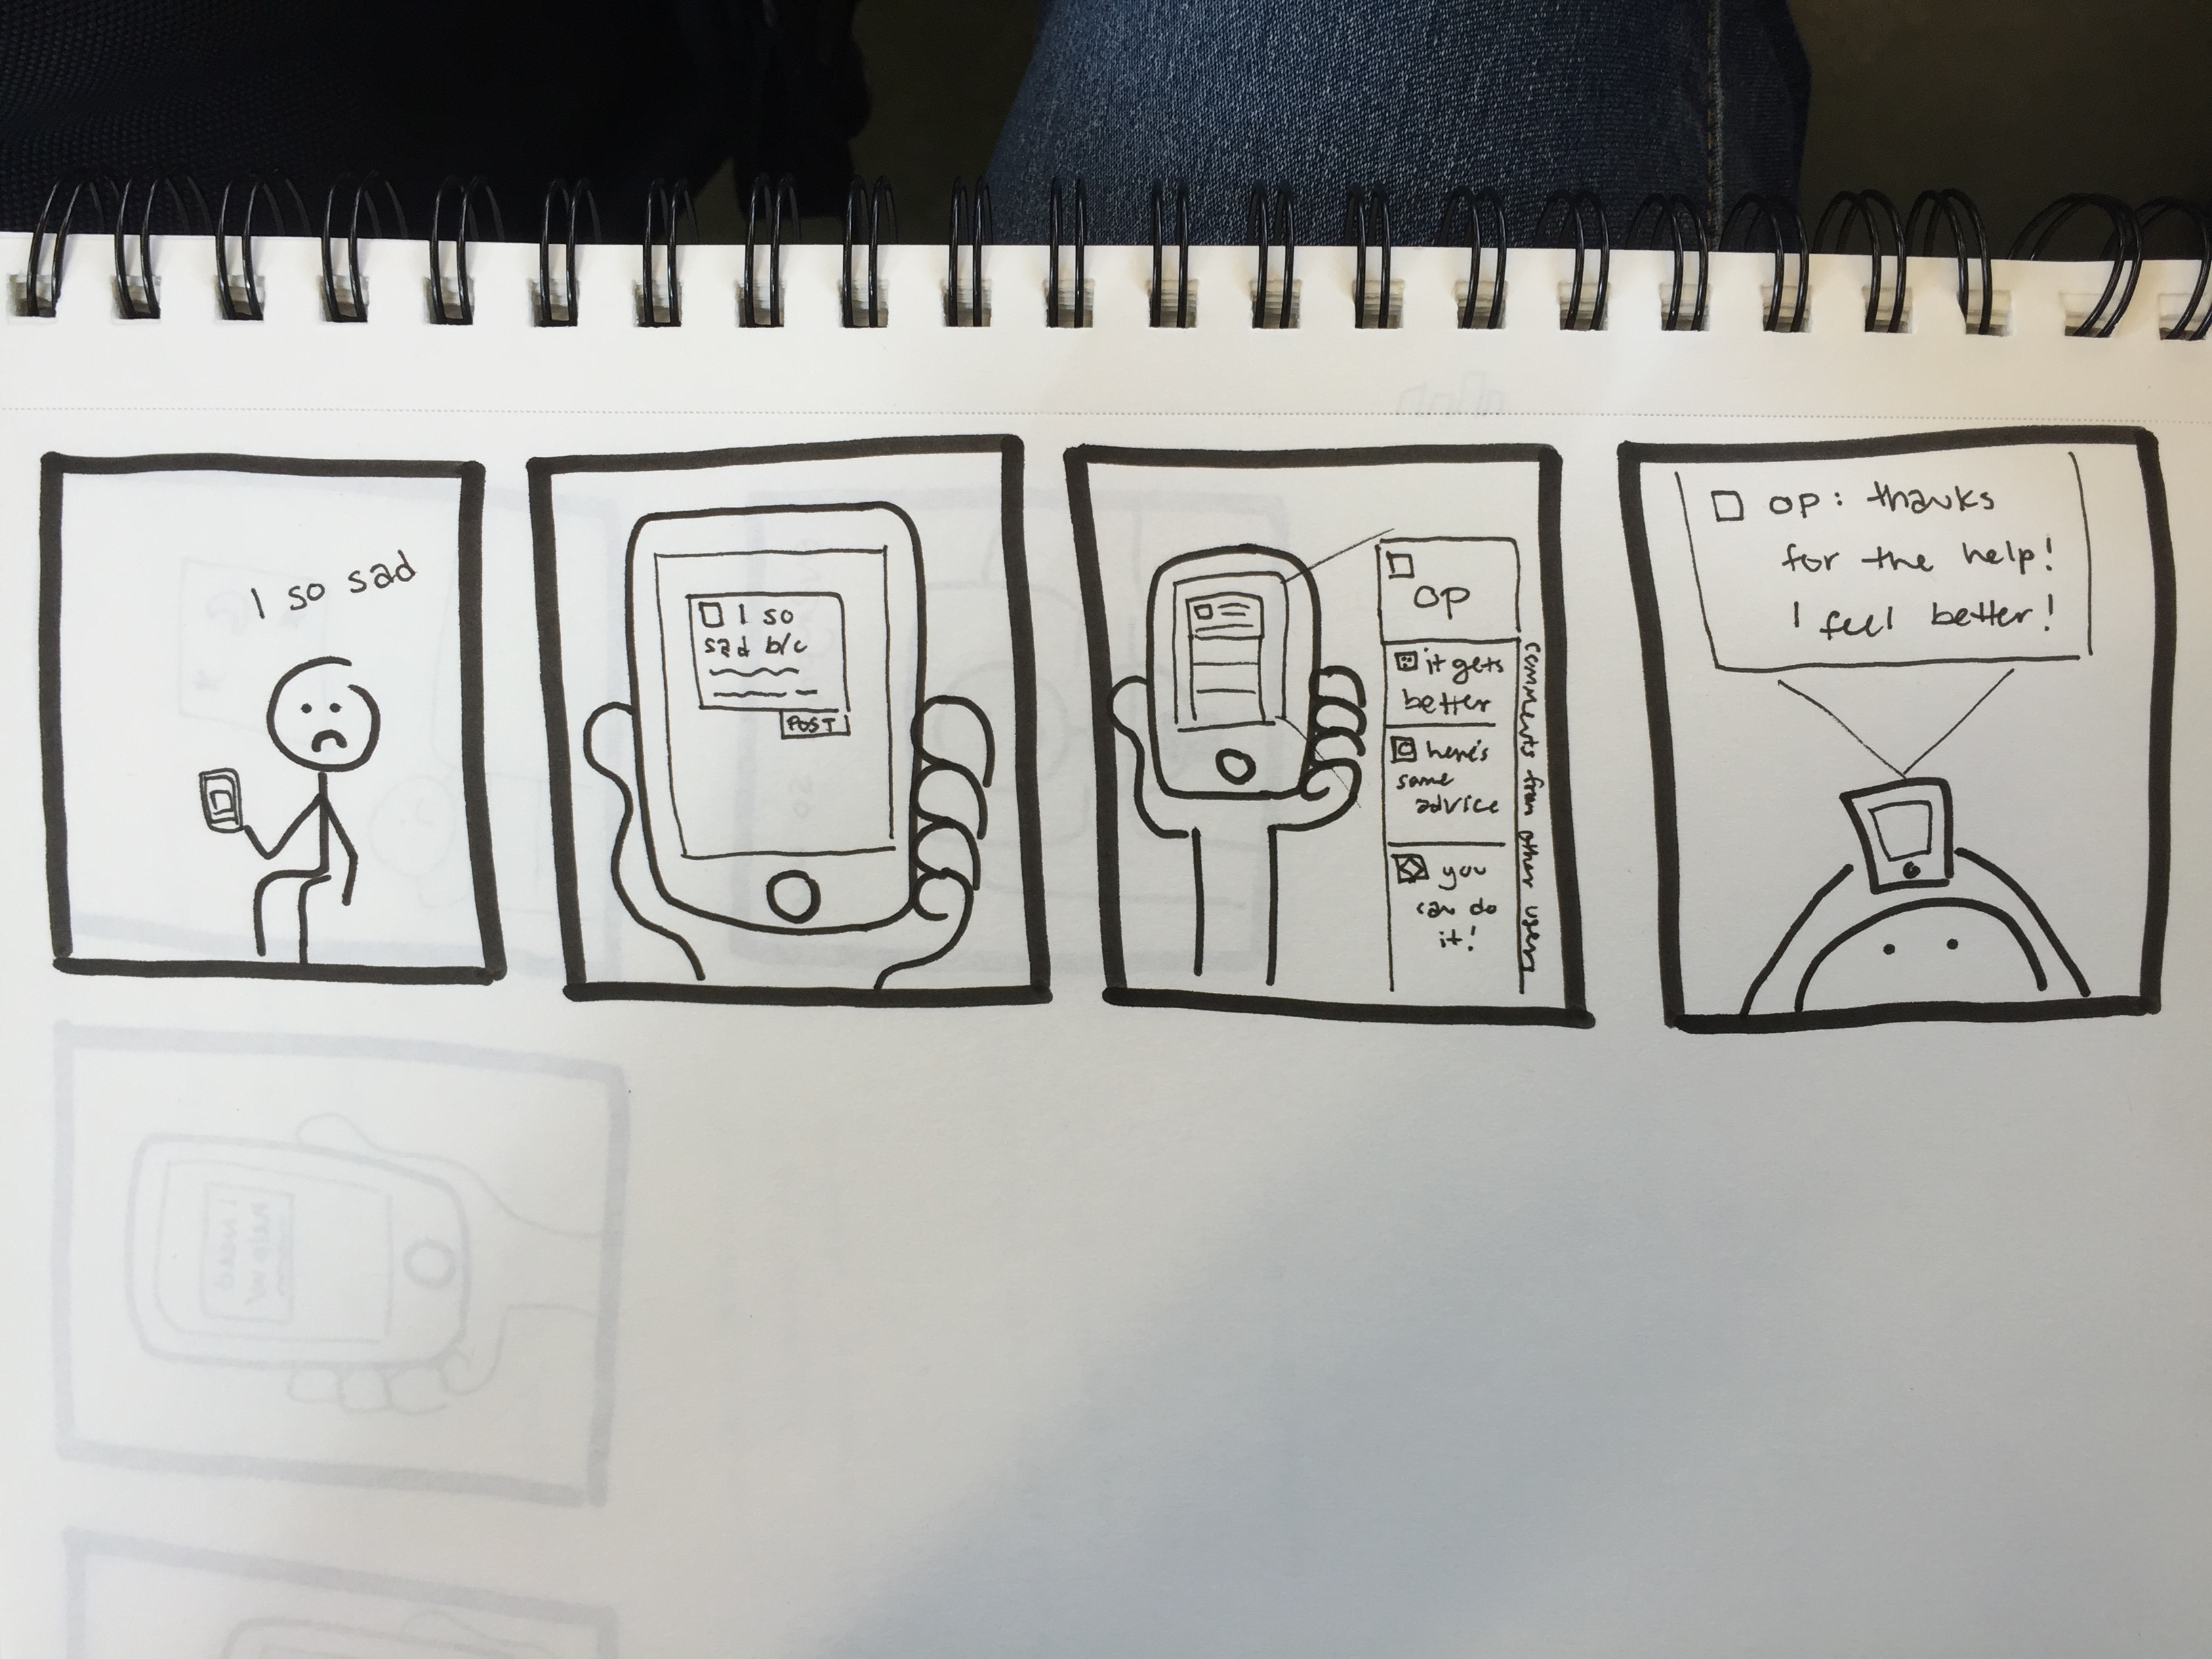 I so sad
I so
sad b/c
POST
OP
it gets
better
here's
some
advice
you
can do
it!
comments from other users
OP: thanks
for the help!
I feel better!
I need
help w/